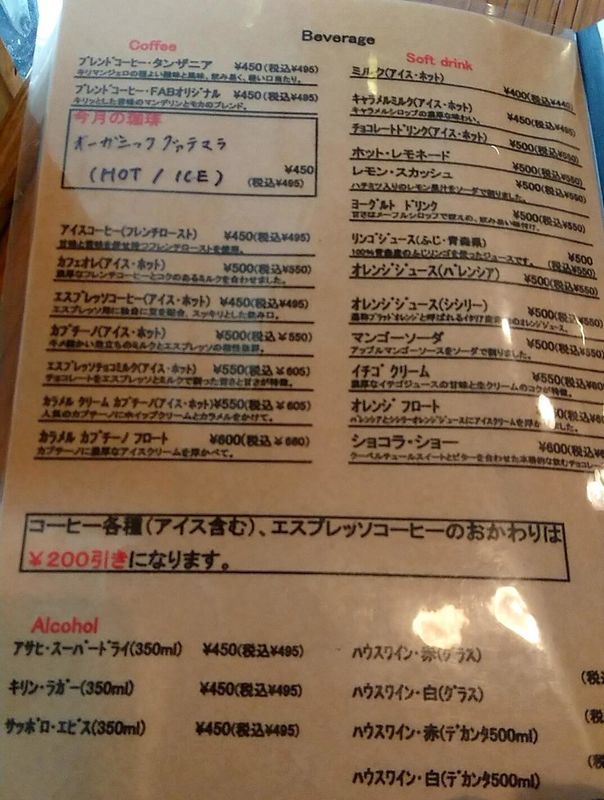 Beverage
Coffee
ブレンドコーヒー・タンザニア ¥450(税込¥495)
キリマンジェロの程よい酸味と風味、飲み易く、軽い口当たり。
ブレンドコーヒー・FABオリジナル ¥450(税込¥495)
キリッとした苦味のマンデリンとモカのブレンド。
今月の珈琲
オーガニックグァテマラ
(HOT / ICE)
¥450
(税込¥495)
アイスコーヒー(フレンチロースト) ¥450(税込¥495)
甘味と苦味を併せ持つフレンチローストを使用。
カフェオレ(アイス・ホット) ¥500(税込¥550)
濃厚なフレンチコーヒーとコクのあるミルクを合わせました。
エスプレッソコーヒー(アイス・ホット) ¥450(税込¥495)
エスプレッソ用に独自に豆を配合、スッキリとした飲み口。
カプチーノ(アイス・ホット) ¥500(税込¥550)
キメ細かい泡立ちのミルクとエスプレッソの相性抜群。
エスプレッソチョコミルク(アイス・ホット) ¥550(税込¥605)
チョコレートをエスプレッソとミルクで割った苦さと甘さが特徴。
カラメル クリーム カプチーノ(アイス・ホット)¥550(税込¥605)
人気のカプチーノにホイップクリームとカラメルをかけて。
カラメル カプチーノ フロート ¥600(税込¥660)
カプチーノに濃厚なアイスクリームを浮かべて。
Soft drink
ミルク(アイス・ホット) ¥400(税込¥440)
キャラメルミルク(アイス・ホット) ¥450(税込¥495)
キャラメルシロップの濃厚な味わい。
チョコレートドリンク(アイス・ホット) ¥500(税込¥550)
ホット・レモネード ¥500(税込¥550)
レモン・スカッシュ ¥500(税込¥550)
ハチミツ入りのレモン果汁をソーダで割りました。
ヨーグルト ドリンク ¥500(税込¥550)
甘さはメープルシロップで控えめ、飲み易い味付け。
リンゴジュース(ふじ・青森県) ¥500
100%青森産のふじリンゴを使ったジュースです。 (税込¥550)
オレンジジュース(バレンシア) ¥500(税込¥550)
オレンジジュース(シシリー) ¥500(税込¥550)
マンゴーソーダ ¥500(税込¥550)
アップルマンゴーソースをソーダで割りました。
イチゴ クリーム ¥550(税込¥605)
濃厚なイチゴジュースの甘味と生クリームのコクが特徴。
オレンジ フロート
バレンシアとシシリーオレンジジュースにアイスクリームを浮かべました。
ショコラ・ショー ¥600(税込¥6
クーベルチュールスイートとビターを合わせた本格的な飲むチョコレー
コーヒー各種(アイス含む)、エスプレッソコーヒーのおかわりは
¥200引きになります。
Alcohol
アサヒ・スーパードライ(350ml) ¥450(税込¥495)
キリン・ラガー(350ml) ¥450(税込¥495)
サッポロ・エビス(350ml) ¥450(税込¥495)
ハウスワイン・赤(グラス)
(税
ハウスワイン・白(グラス)
(税
ハウスワイン・赤(デカンタ500ml)
(税
ハウスワイン・白(デカンタ500ml)